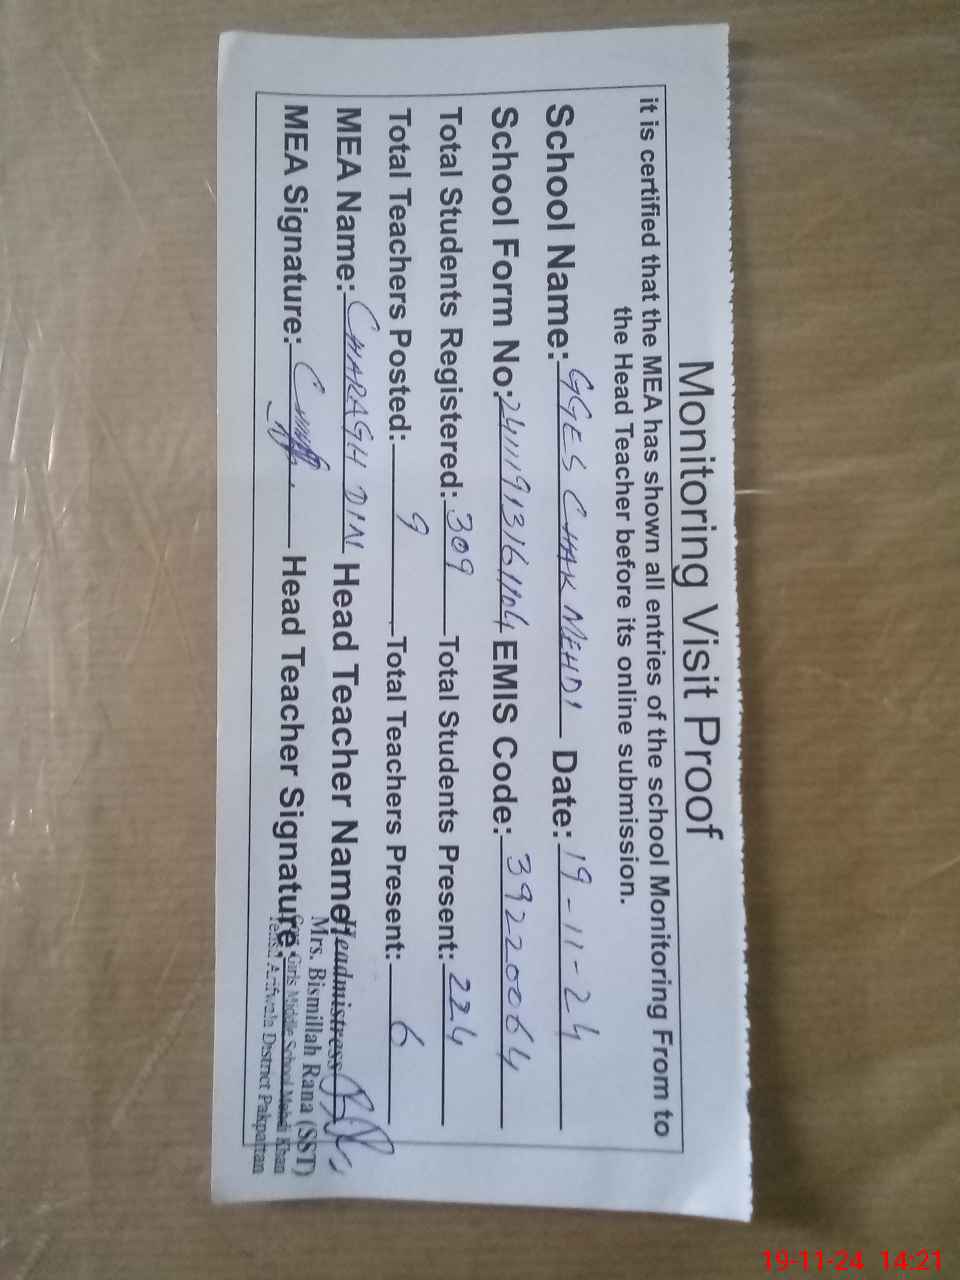 Monitoring Visit Proof
it is certified that the MEA has shown all entries of the school Monitoring From to
the Head Teacher before its online submission.
School Name: GGES CHAK MEHDI Date: 19-11-24
School Form No: 241119131611104 EMIS Code: 39220064
Total Students Registered: 309 Total Students Present: 224
Total Teachers Posted: 9 Total Teachers Present: 6
MEA Name: CHARAGH DIN Head Teacher Name: Headmistress
MEA Signature: Head Teacher Signature:
Mrs. Bismillah Rana (SST)
Govt. Girls Middle School Mehdi Khan
Tehsil Arifwala District Pakpattan
19-11-24 14:21